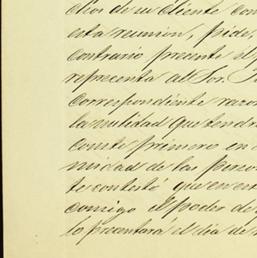 de su cliente con
esta reunion, pide,
contrario presente el
representa al Sor.
correspondiente razon
la nulidad que tendr
comite primero en
midad de las perso
te contestó que en
comigo el poder de
lo presentara el dia de